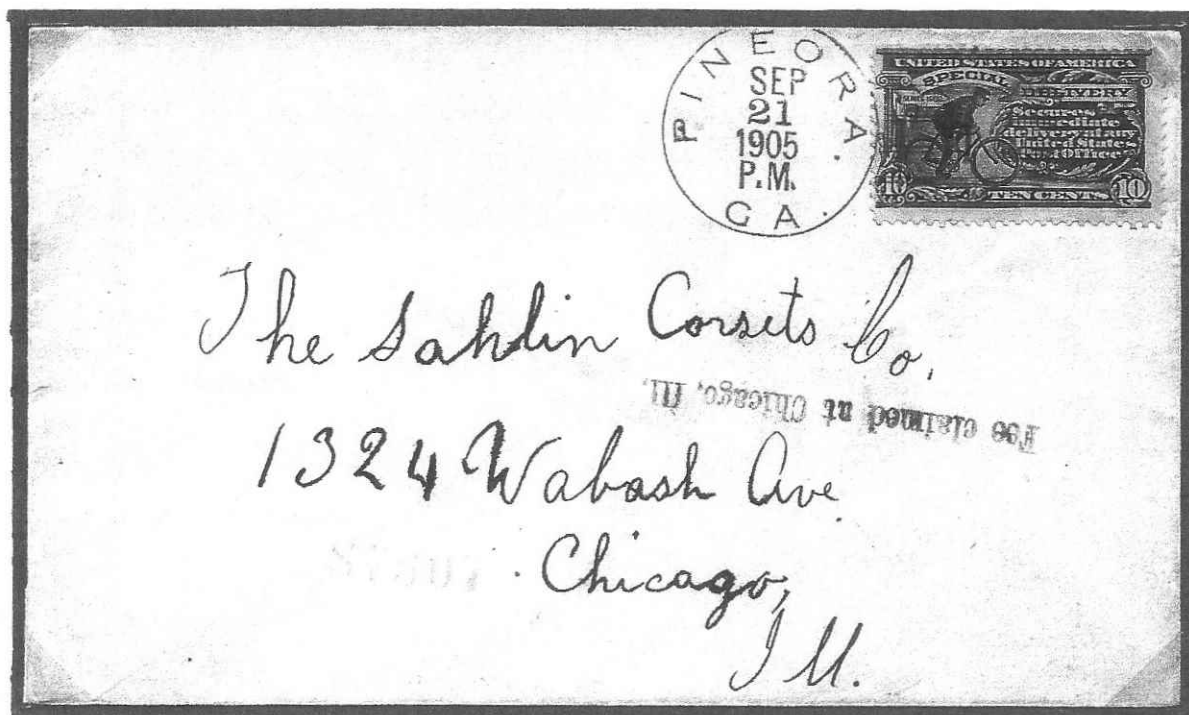 PINEORA.
SEP
21
1905
P.M.
GA.
UNITED STATES OF AMERICA
SPECIAL DELIVERY
Secures
immediate
delivery at any
United States
Post Office
10 TEN CENTS 10
The Sahlin Corsets Co.
Fee claimed at Chicago, Ill.
1324 Wabash Ave.
Chicago,
Ill.